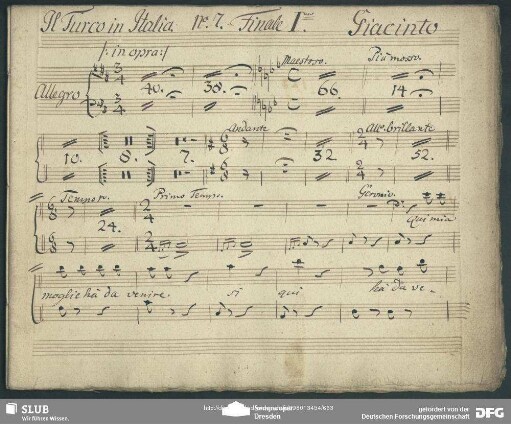 Il Turco in Italia. No. 7. Finale I.mo Giacinto
/: in opra :/
Maestoso. Più mosso.
Allegro
3 4 40. 38. C 66 14
3 4
Andante All.o brillante
10. 8. 7. 6 8 32 2 4 52.
Tempo 1o. Primo Tempo. Geronio.
6 8 24. 2 4 Qui mia
moglie hà da venire. si qui hà da ve-
SLUB
Wir führen Wissen.
Dresden
gefördert von der
Deutschen Forschungsgemeinschaft
DFG